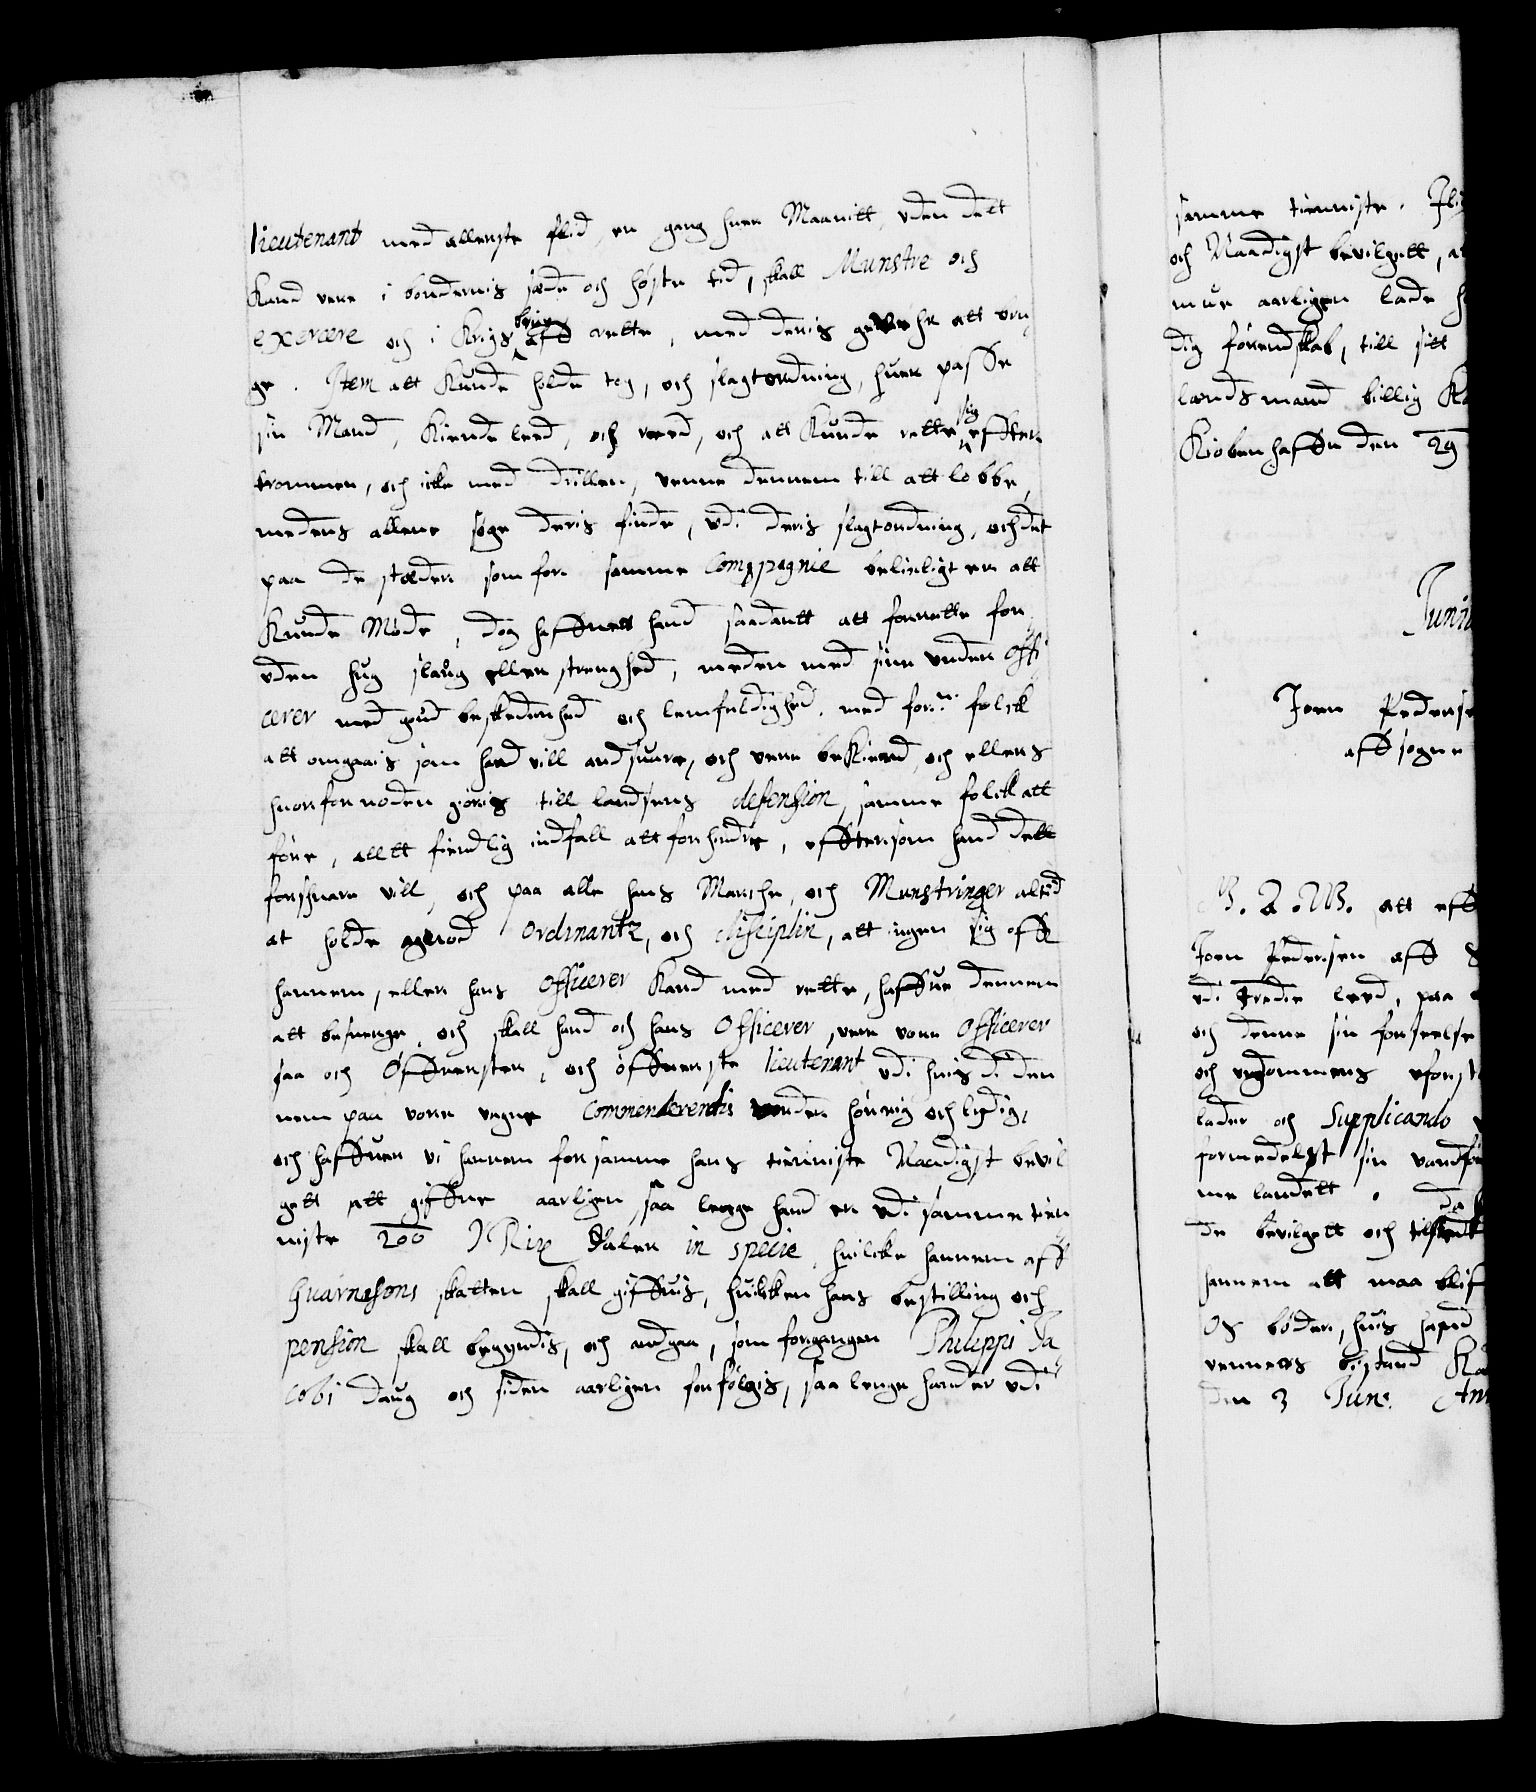 lieutenant med allerste flid, en gang huer Maanitt, uden dett
Kand vere i bondernis sæde och høste tid, skall Munstre och
exercere och i Krigs brug aff rette, med deris gevehr att bru
ge. Item att Kunde holde tog, och slagtordning, huer passe
sin Mand, Kiende leed, och reed, och att Kunde rette sig effter
trommen, och icke med drillen, venne dennem till att lobbe,
medens allene søge deris finde, udi deris slagtordning, och det
paa de stæder som for samme Compagnie beleiligt er att
Kunde Møde, dog haffuer hand saadantt att forrette for
uden hug slaug eller strenghed, meden med sine under offi
cerer med goed beskedenhed och lemfeldighed, med for.ne folck
att omgaais som hand vill andsuare, och vere bekiend, och ellers
huor fornøden giøris till landsens defension, samme folck att
føre, allt fiendlig indfall att forhindre, efftersom hand dett
forsuare vill, och paa alle hans Marche, och Munstringer altid
at holde goed Ordinantz, och disciplin, att ingen sig offr
hannem, eller hans Officerer Kand med rette, haffue dennem
att besuerge, och skall hand och hans Officerer, vere vore Officerer
saa och Offuersten, och offuerste lieutenant udi huis di den
nem paa vore vegne Commenderendis vorder hørrig och lydig,
och haffuer vi hannem for samme hans tienniste Naadigst bevil
gett att giffue aarligen, saa lenge hand er udi samme tien
niste 200 Rix Daler in specie, huilcke hannem aff
Guarnisons skatten skall giffuis, huilcken hans bestilling och
pension skall begyndis, och andgaa, som forgangen Philippi Ja
cobi daug och siden aarligen forfølgis, saa lenge hand er udi
samme tienniste.
och Naadigst bevilgett, a
aarligen lade
dig førendskab, till sitt
landsmand billig
Kiøbenhaffn den 29
Juni
Joen Pederse
aff sogne
att eff
Joen Pedersen aff
udi tredie leed, paa
och denne sin forseelse
och ungdommens uforst
lader och Supplicando
formedelst sin vandfør
me landett.
de bevilgett och
hannem att maa blif
Os bøder, huis hand
venners bistand
den 3 Juni. An